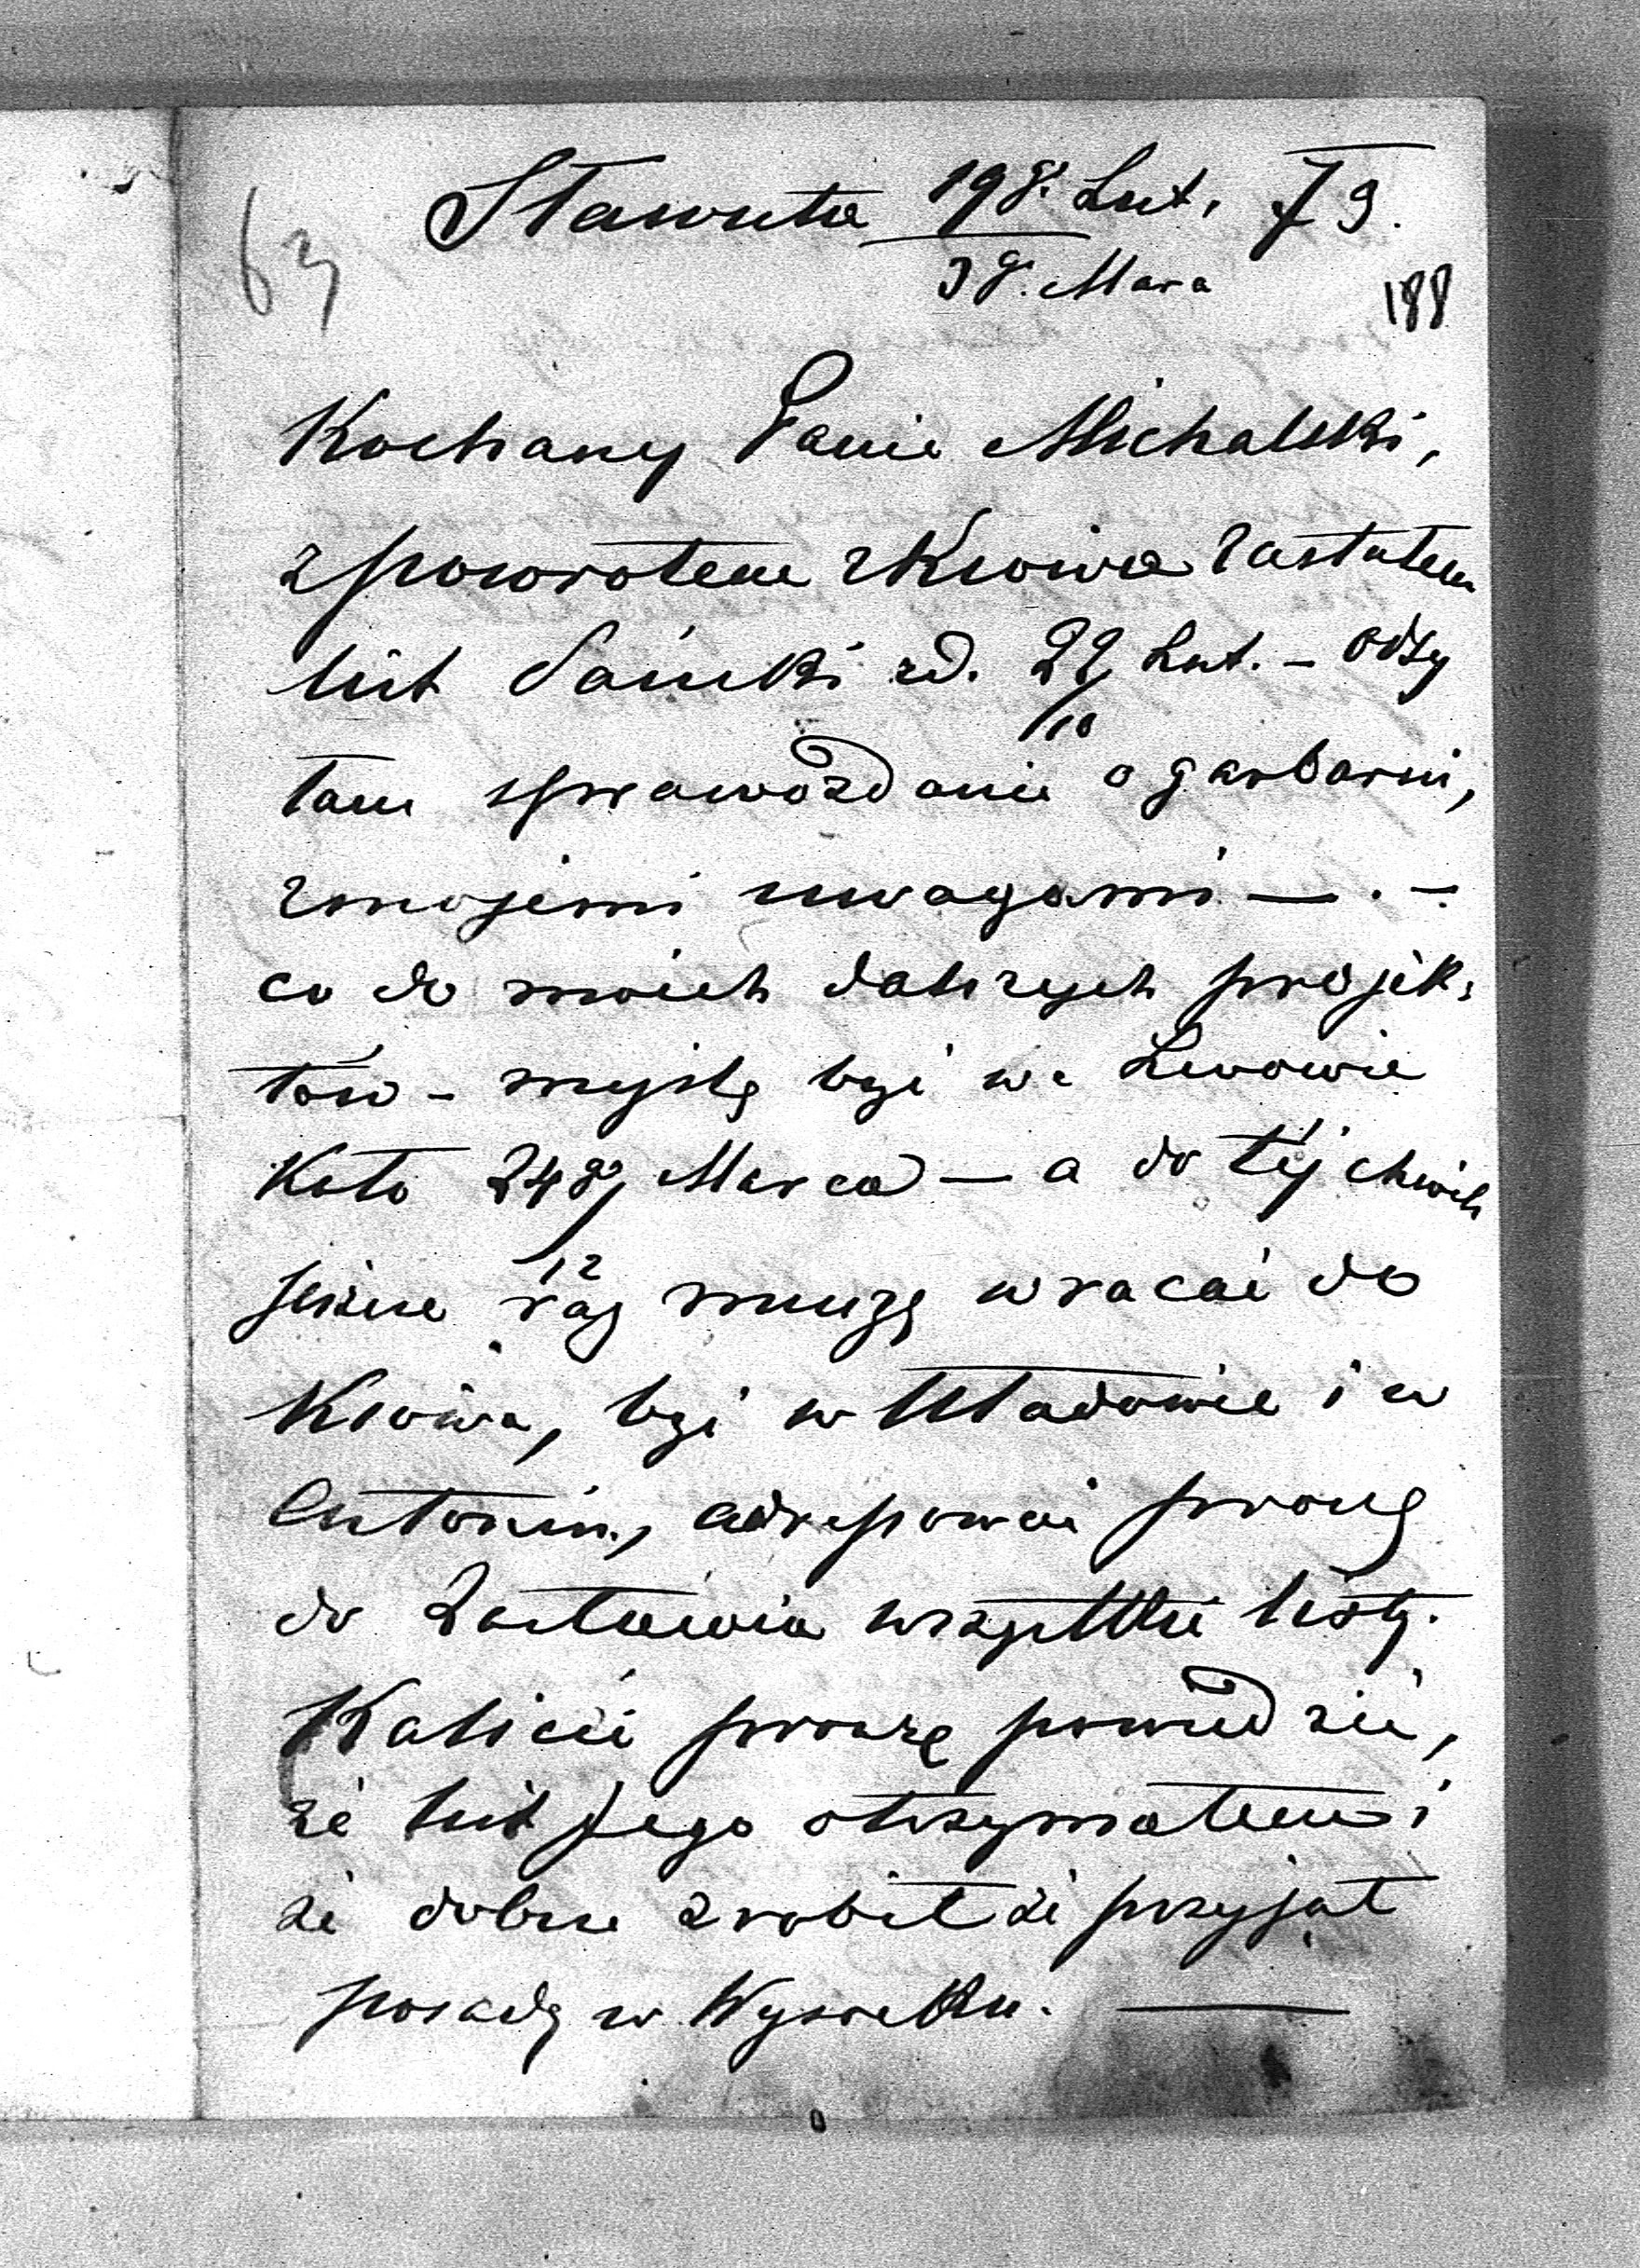 Sławuta 19 g. Lut. 79.
3 g. Marca
63
188
Kochany Panie Michalski,
z powrotem z Kijowa zastałem
list Pański z d. 22 Lut. – odsy
10
łam sprawozdanie o garbarni,
z mojemi uwagami — . –
co do moich dalszych projek-
tów – myślę być we Lwowie
koło 24 g. Marca — a do téj chwili
12
jeszcze raz muszę wracać do
Kijowa, być w Uładowie i w
Antonin., adresować proszę
do Zasławia wszystkie listy.
Kalicie proszę powiedzieć,
że list Jego otrzymałem i
że dobrze zrobił że przyjął
posadę w Wysocku. —